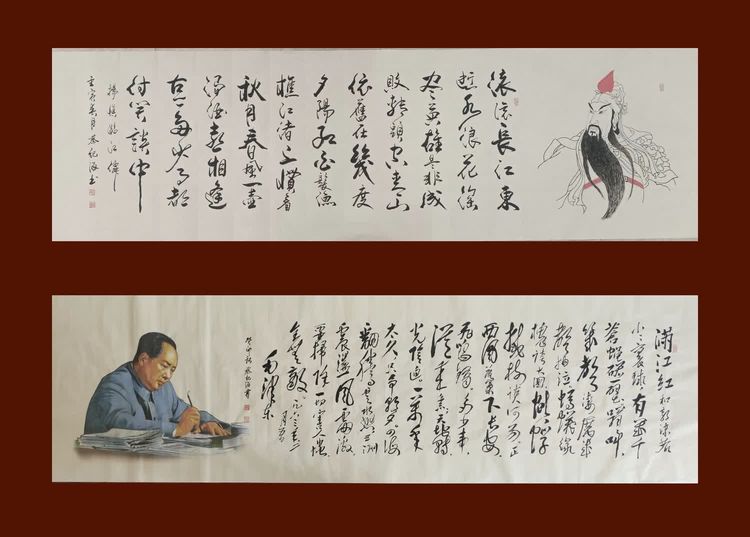 滚滚長江東
逝水浪花淘
尽英雄是非成
败转頭空青山
依舊在幾度
夕陽红白髮漁
樵江渚上慣看
秋月春風一壶
浊酒喜相逢
古今多少事都
付笑談中
楊慎臨江仙
滿江红 和郭沫若
小小寰球有幾个
苍蝇碰壁嗡嗡叫
幾声凄厉幾声
抽泣蚂蚁缘
槐誇大國蚍蜉
撼树谈何易正
西風落葉下長安
飞鸣镝多少事
從来急天地轉
光陰迫一萬年
太久只争朝夕四海
翻腾雲水怒五洲
震盪風雷激
要掃除一切害人虫
全無敵
毛泽东